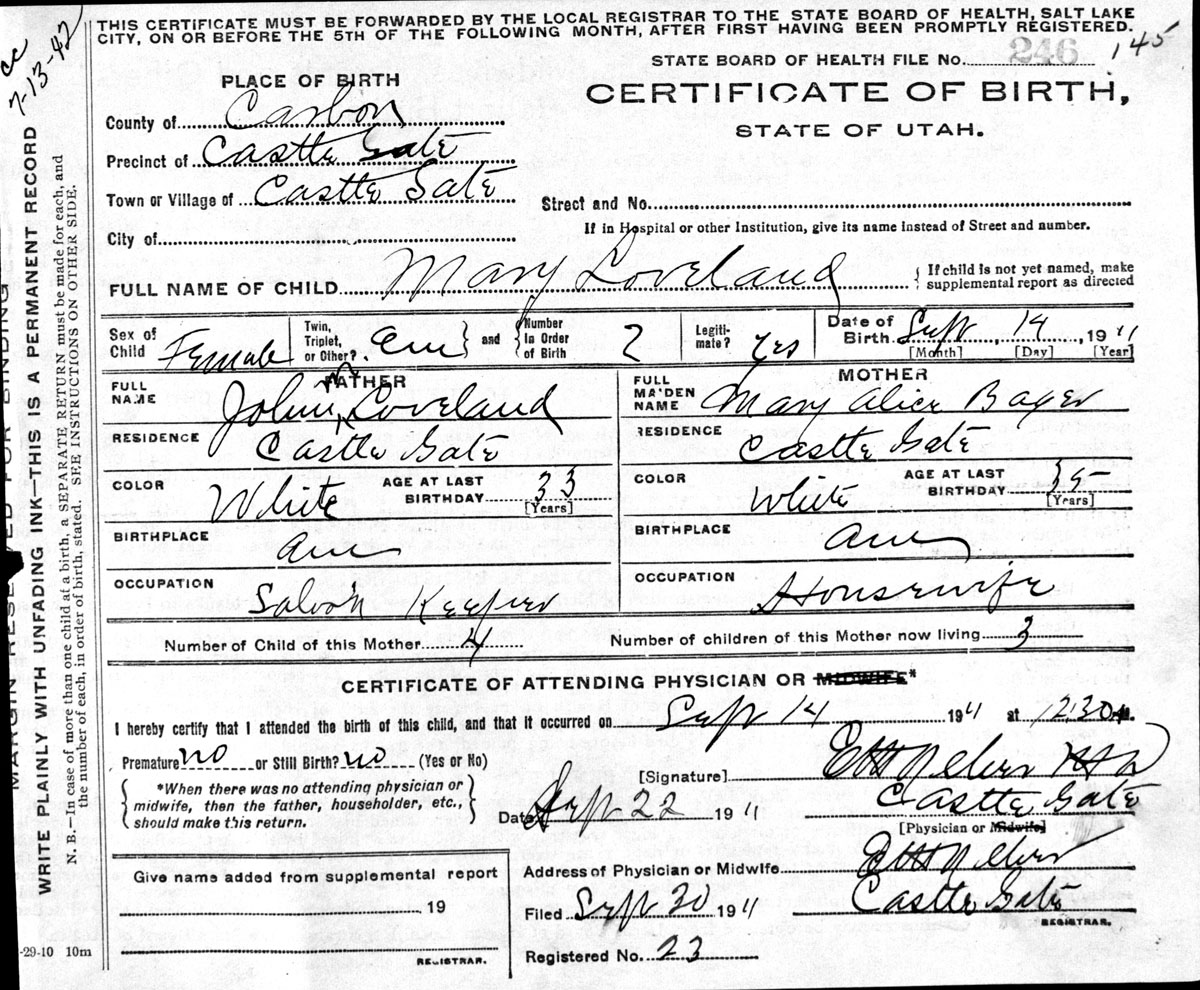 THIS CERTIFICATE MUST BE FORWARDED BY THE LOCAL REGISTRAR TO THE STATE BOARD OF HEALTH, SALT LAKE
CITY, ON OR BEFORE THE 5TH OF THE FOLLOWING MONTH, AFTER FIRST HAVING BEEN PROMPTLY REGISTERED.
cc
7-13-42
STATE BOARD OF HEALTH FILE No. 246 145
PLACE OF BIRTH
CERTIFICATE OF BIRTH,
STATE OF UTAH.
County of Carbon
Precinct of Castle Gate
Town or Village of Castle Gate
Street and No.
City of
If in Hospital or other Institution, give its name instead of Street and number.
FULL NAME OF CHILD Mary Loveland { If child is not yet named, make
supplemental report as directed
Sex of Child Female Twin, Triplet, or Other? Am } and { Number in Order of Birth 2 Legiti-mate? Yes Date of Birth Sept, 14, 1911
[Month] [Day] [Year]
FATHER
FULL NAME John M Loveland
RESIDENCE Castle Gate
COLOR White AGE AT LAST BIRTHDAY 33
[Years]
BIRTHPLACE Am
OCCUPATION Saloon Keeper
MOTHER
FULL MAIDEN NAME Mary Alice
RESIDENCE Castle Gate
COLOR White AGE AT LAST BIRTHDAY 35
[Years]
BIRTHPLACE Am
OCCUPATION Housewife
Number of Child of this Mother 4 Number of children of this Mother now living 3
CERTIFICATE OF ATTENDING PHYSICIAN OR MIDWIFE*
I hereby certify that I attended the birth of this child, and that it occurred on Sept 14 1911 at 1230 M.
Premature no or Still Birth? no (Yes or No)
{ *When there was no attending physician or
midwife, then the father, householder, etc.,
should make this return. }
[Signature]
Castle Gate
Date Sept 22 1911
[Physician or Midwife]
Address of Physician or Midwife
Filed Sept 30 1911 Castle Gate
REGISTRAR.
Registered No. 23
Give name added from supplemental report
19
REGISTRAR.
-29-10 10m
MARGIN RESERVED FOR BINDING
WRITE PLAINLY WITH UNFADING INK—THIS IS A PERMANENT RECORD
N. B.—In case of more than one child at a birth, a SEPARATE RETURN must be made for each, and
the number of each, in order of birth, stated. SEE INSTRUCTIONS ON OTHER SIDE.